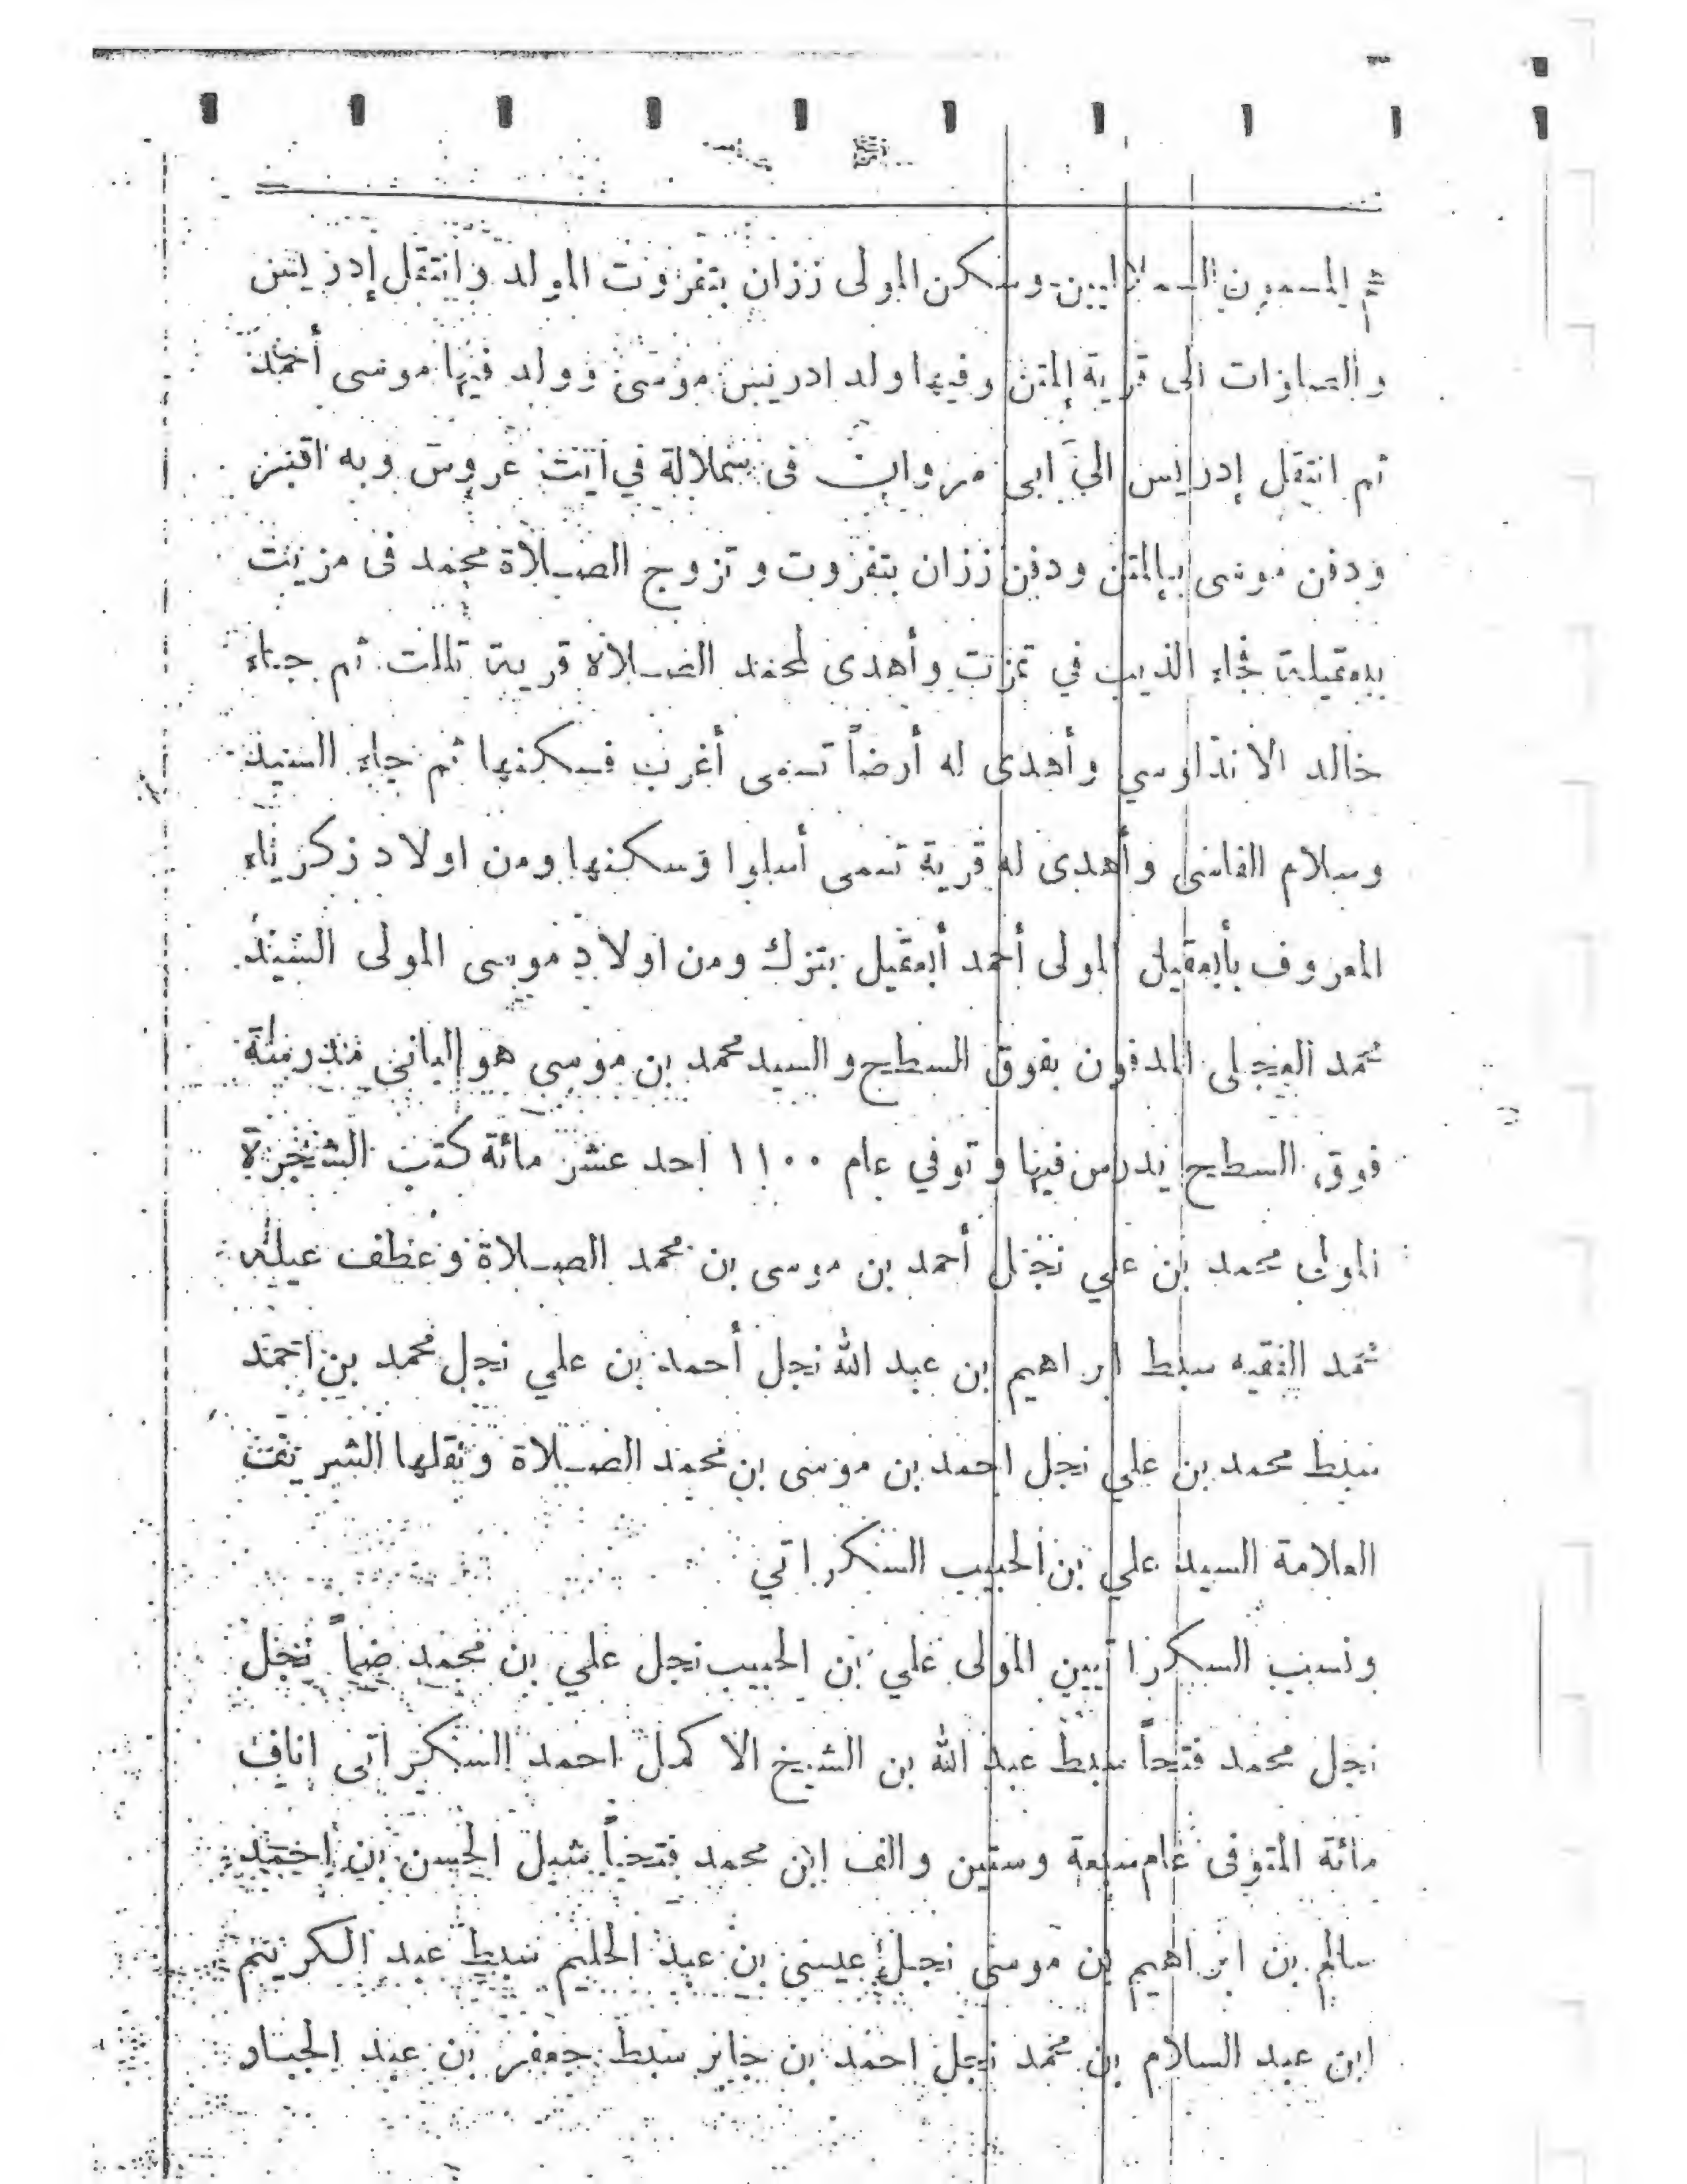 ثم وسكن المولى ززان بتفزوت المولد وانتقل إدريس
والصلوات الى قرية المتن وفيها ولد ادريس موسى وولد فيها موسى أحمد
ثم انتقل إدريس الى ابى مروان فى سملالة في ايت عروس وبه اقبر
ودفن موسى بالمتن ودفن ززان بتفزوت و تزوج الصلاة محمد فى مزيت
فجاء الذيب في تمزت وأهدى لمحمد الصلاة قرية تللت ثم جاء
خالد الاندلوسي وأهدى له أرضاً تسمى أغرب فسكنها ثم جاء السيد
وسلام الفاسى وأهدى له قرية تسمى أسلوا وسكنها ومن اولاد زكرياء
المعروف بأبعقيل المولى أحمد أبعقيل بتزك ومن اولاد موسى المولى السيد
محمد العجلى المدفون بفوق السطيح والسيد محمد بن موسى هو البانى مدرسة
فوق السطيح يدرس فيها وتوفي عام ١١٠٠ احد عشر مائة كتب الشجرة
محمد بن علي نجل أحمد بن موسى بن محمد الصلاة وعطف عيله
محمد الفقيه سبط ابراهيم بن عبد الله نجل أحمد بن علي نجل محمد بن احمد
سبط محمد بن علي نجل احمد بن موسى بن محمد الصلاة ونقلها الشريف
العلامة السيد علي بن الحبيب السكراتي
ونسب السكراتيين المولى علي بن الحبيب نجل علي بن محمد ضماً نجل
نجل محمد فتحاً سبط عبد الله بن الشيخ الاكمل احمد السكراتى اناف
مائة المتوفى عام سبعة وستين والف ابن محمد فتحاً شبل الحسن بن احمد
سالم بن ابراهيم بن موسى نجل عيسى بن عبد الحليم سبط عبد الكريم
ابن عبد السلام بن محمد نجل احمد بن جابر سبط جعفر بن عبد الجبار